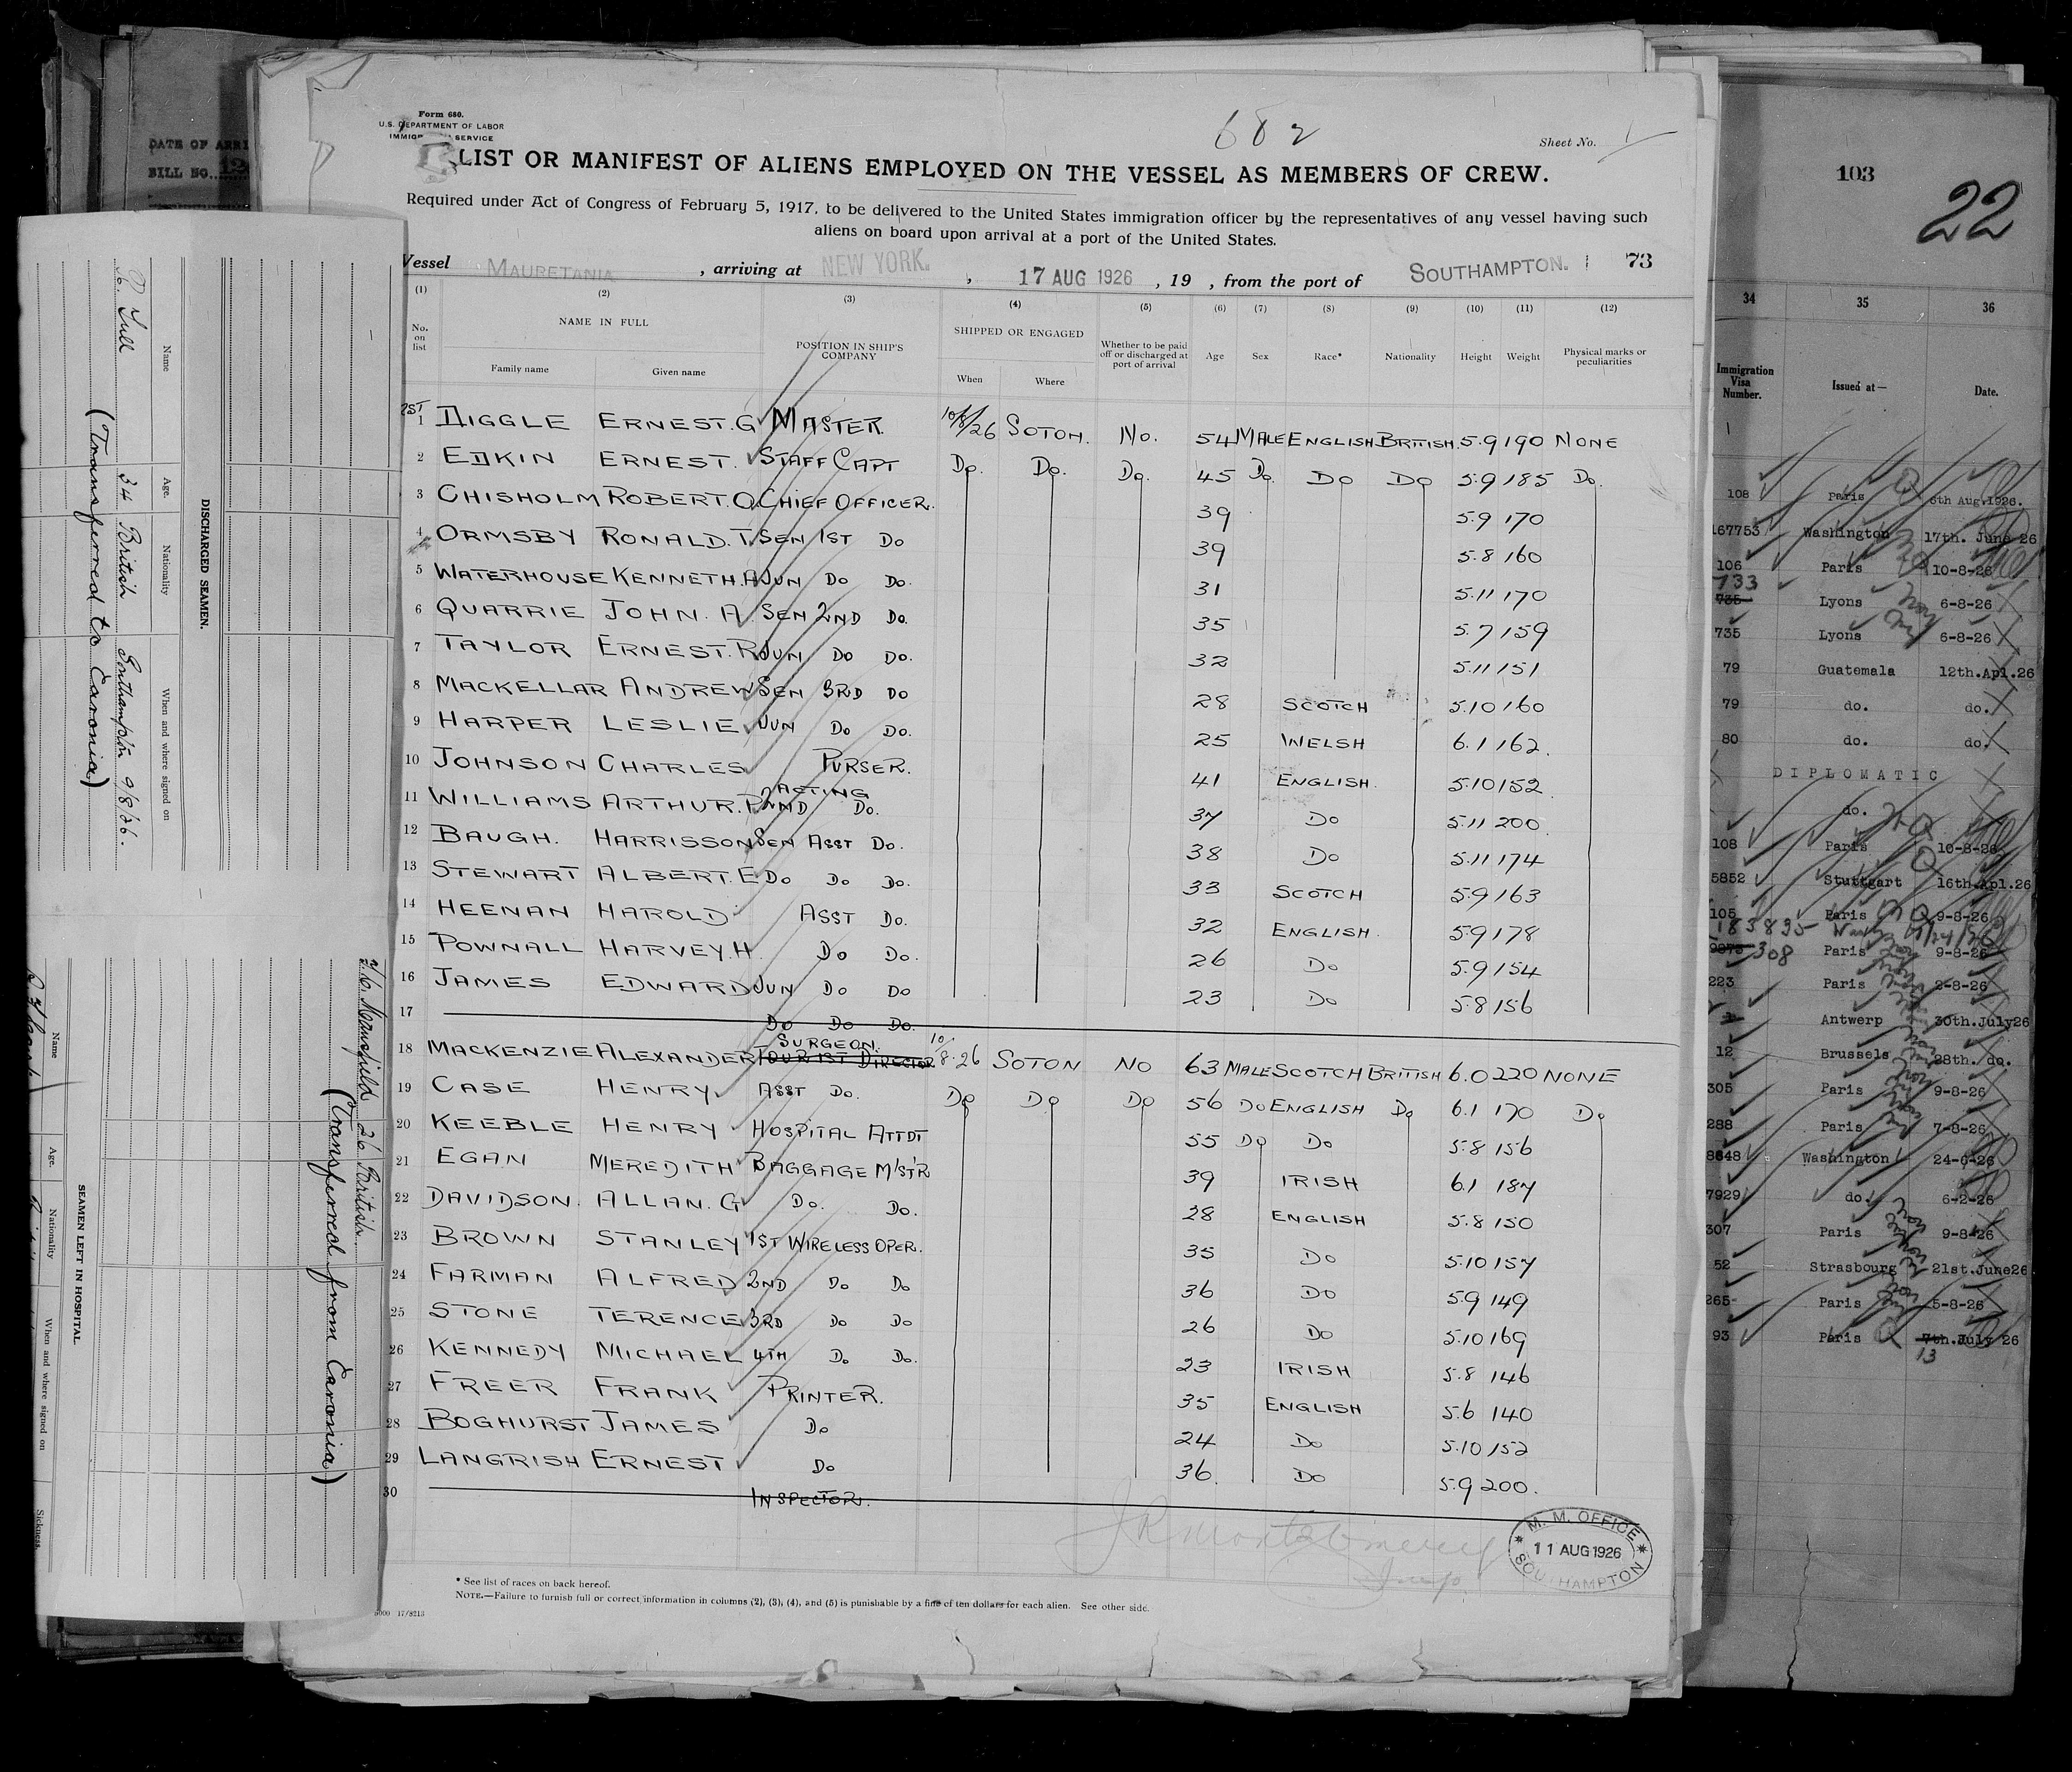 Form 680.
U.S. DEPARTMENT OF LABOR
SERVICE
682
Sheet No. 1
LIST OR MANIFEST OF ALIENS EMPLOYED ON THE VESSEL AS MEMBERS OF CREW.
Required under Act of Congress of February 5, 1917, to be delivered to the United States immigration officer by the representatives of any vessel having such
aliens on board upon arrival at a port of the United States.
Vessel MAURETANIA, arriving at NEW YORK., 17 AUG 1926, 19 , from the port of SOUTHAMPTON. 73
(1) (2) (3) (4) (5) (6) (7) (8) (9) (10) (11) (12)
No. on list NAME IN FULL Family name Given name POSITION IN SHIP'S COMPANY SHIPPED OR ENGAGED When Where Whether to be paid off or discharged at port of arrival Age Sex Race* Nationality Height Weight Physical marks or peculiarities
1 DIGGLE ERNEST. G MASTER. 10/8/26 SOTON. No. 54 MALE ENGLISH BRITISH. 5.9 190 NONE
2 EDKIN ERNEST. STAFF CAPT Do. Do. Do. 45 Do. Do Do 5.9 185 Do.
3 CHISHOLM ROBERT. O. CHIEF OFFICER. 39 5.9 170
4 ORMSBY RONALD. T. SEN 1ST Do 39 5.8 160
5 WATERHOUSE KENNETH. A JUN Do Do. 31 5.11 170
6 QUARRIE JOHN. A. SEN 2ND Do. 35 5.7 159
7 TAYLOR ERNEST. R. JUN Do Do. 32 5.11 151
8 MACKELLAR ANDREW SEN 3RD Do 28 SCOTCH 5.10 160
9 HARPER LESLIE JUN Do Do. 25 WELSH 6.1 162.
10 JOHNSON CHARLES PURSER. 41 ENGLISH. 5.10 152
11 WILLIAMS ARTHUR. P. ACTING 2ND Do. 37 Do 5.11 200.
12 BAUGH. HARRISSON SEN ASST Do. 38 Do 5.11 174
13 STEWART ALBERT. E Do Do Do. 33 SCOTCH 5.9 163
14 HEENAN HAROLD ASST Do. 32 ENGLISH. 5.9 178
15 POWNALL HARVEY. H. Do Do. 26 Do 5.9 154
16 JAMES EDWARD JUN Do Do 23 Do 5.8 156
17 Do Do Do.
18 MACKENZIE ALEXANDER SURGEON. TOURIST DIRECTOR 10/8.26 SOTON NO 63 MALE SCOTCH BRITISH 6.0 220 NONE
19 CASE HENRY. ASST Do. Do Do Do 56 Do ENGLISH Do 6.1 170 Do
20 KEEBLE HENRY HOSPITAL ATTDT 55 Do Do 5.8 156
21 EGAN MEREDITH BAGGAGE M'ST'R 39 IRISH 6.1 187
22 DAVIDSON. ALLAN. G Do. Do. 28 ENGLISH 5.8 150
23 BROWN STANLEY 1ST WIRELESS OPER. 35 Do 5.10 157
24 FARMAN ALFRED 2ND Do Do 36 Do 5.9 149
25 STONE TERENCE 3RD Do Do 26 Do 5.10 169
26 KENNEDY MICHAEL 4TH Do Do. 23 IRISH 5.8 146
27 FREER FRANK PRINTER. 35 ENGLISH 5.6 140
28 BOGHURST JAMES Do 24 Do 5.10 152
29 LANGRISH ERNEST Do 36. Do 5.9 200.
30 INSPECTOR.
M. M. OFFICE
11 AUG 1926
SOUTHAMPTON
* See list of races on back hereof.
NOTE.—Failure to furnish full or correct information in columns (2), (3), (4), and (5) is punishable by a fine of ten dollars for each alien. See other side.
17/8213
DISCHARGED SEAMEN.
Name Age. Nationality When and where signed on
Tull 34 British Southampton 9/8/26.
(Transferred to Caronia)
Mansfield 26 British
(Transferred from Caronia)
SEAMEN LEFT IN HOSPITAL.
Name Age. Nationality When and where signed on Sickness.
BILL NO.
103
22
34 35 36
Immigration Visa Number. Issued at— Date.
108 Paris 6th Aug.1926.
167753 Washington 17th. June 26
106 Paris 10-8-26
733 735 Lyons 6-8-26
735 Lyons 6-8-26
79 Guatemala 12th.Apl.26
79 do. do.
80 do. do.
DIPLOMATIC
do.
108 Paris 10-8-26
5852 Stuttgart 16th.Apl.26
105 Paris 9-8-26
183835
308 Paris 9-8-26
223 Paris 2-8-26
Antwerp 30th.July26
12 Brussels 28th. do.
305 Paris 9-8-26
288 Paris 7-8-26
8648 Washington 24-6-26
7929 do. 6-2-26
307 Paris 9-8-26
52 Strasbourg 21st.June26
265 Paris 5-8-26
93 Paris 7th.July 26
13